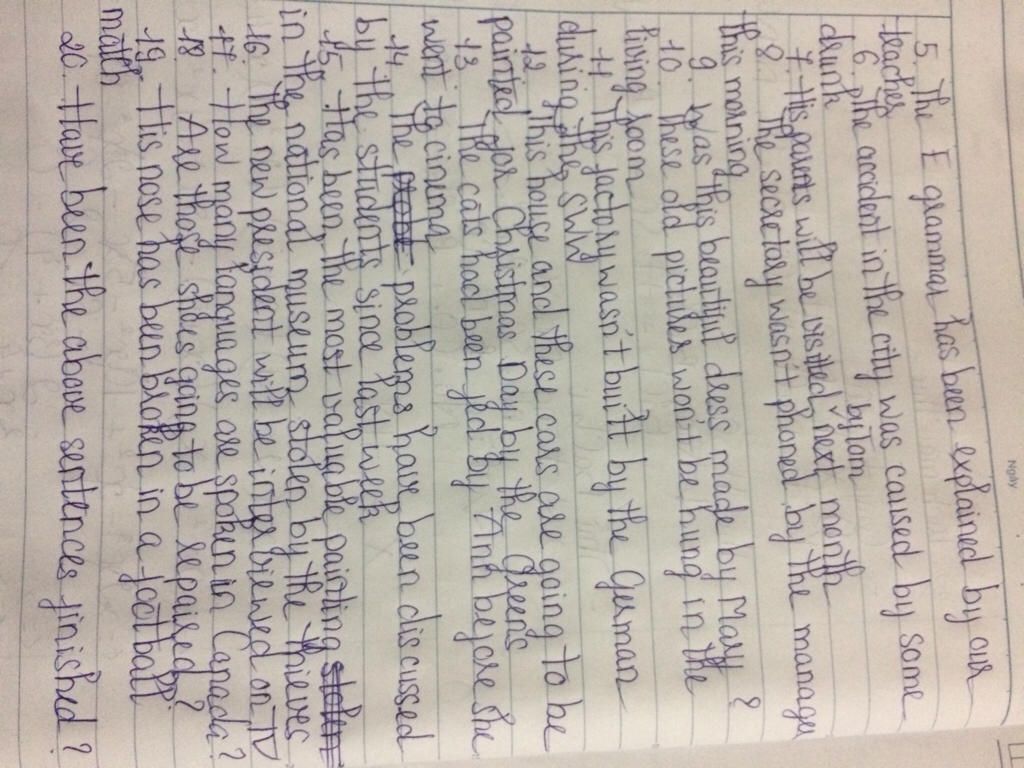 Ngày
5. The E grammar has been explained by our
teacher
6. The accident in the city was caused by some
drunk
7. His parents will be visited by Tom next month
8. The secretary wasn't phoned by the manager
this morning
9. Was this beautiful dress made by Mary?
10. These old pictures won't be hung in the
living room
11. This factory wasn't built by the German
during the SWW
12. This house and these cars are going to be
painted for Christmas Day by the Greens
13. The cats had been fed by Ann before she
went to cinema
14. The problems have been discussed
by the students since last week
15. Has been the most valuable painting stolen
in the national museum stolen by the thieves
16. The new president will be interbiewed on TV
17. How many languages are spoken in Canada?
18. Are those shoes going to be repaired?
19. His nose has been broken in a football
math
20. Have been the above sentences finished?